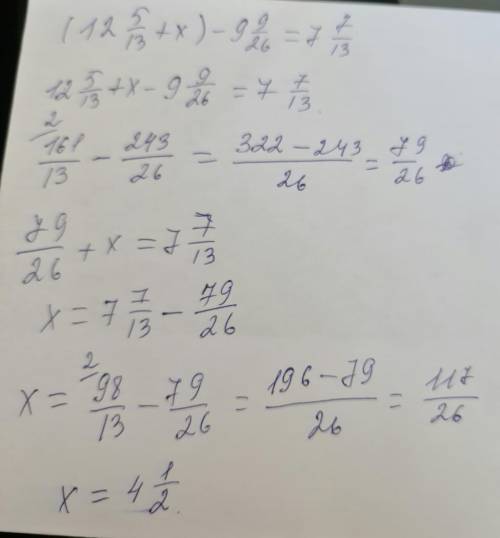 (12 5/13 + x) - 9 9/26 = 7 7/13
12 5/13 + x - 9 9/26 = 7 7/13
2/ 161/13 - 243/26 = 322 - 243/26 = 79/26
79/26 + x = 7 7/13
x = 7 7/13 - 79/26
x = 2/ 98/13 - 79/26 = 196 - 79/26 = 117/26
x = 4 1/2.